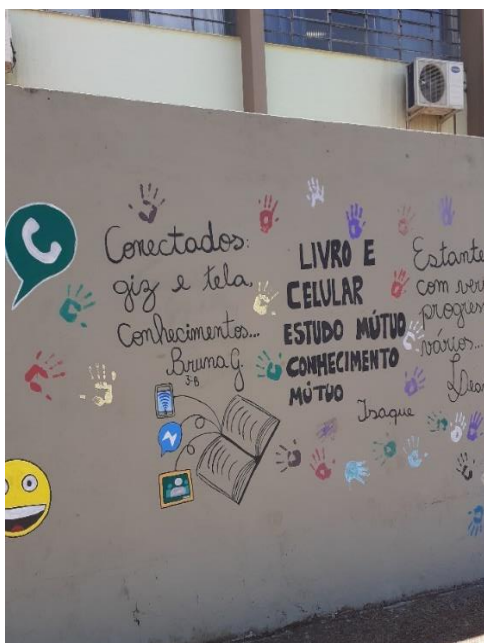 Conectados:
giz e tela,
Conhecimentos...
Bruna G.
3ºB
LIVRO E
CELULAR
ESTUDO MÚTUO
CONHECIMENTO
MÚTUO
Isaque
Estante
com
vários...